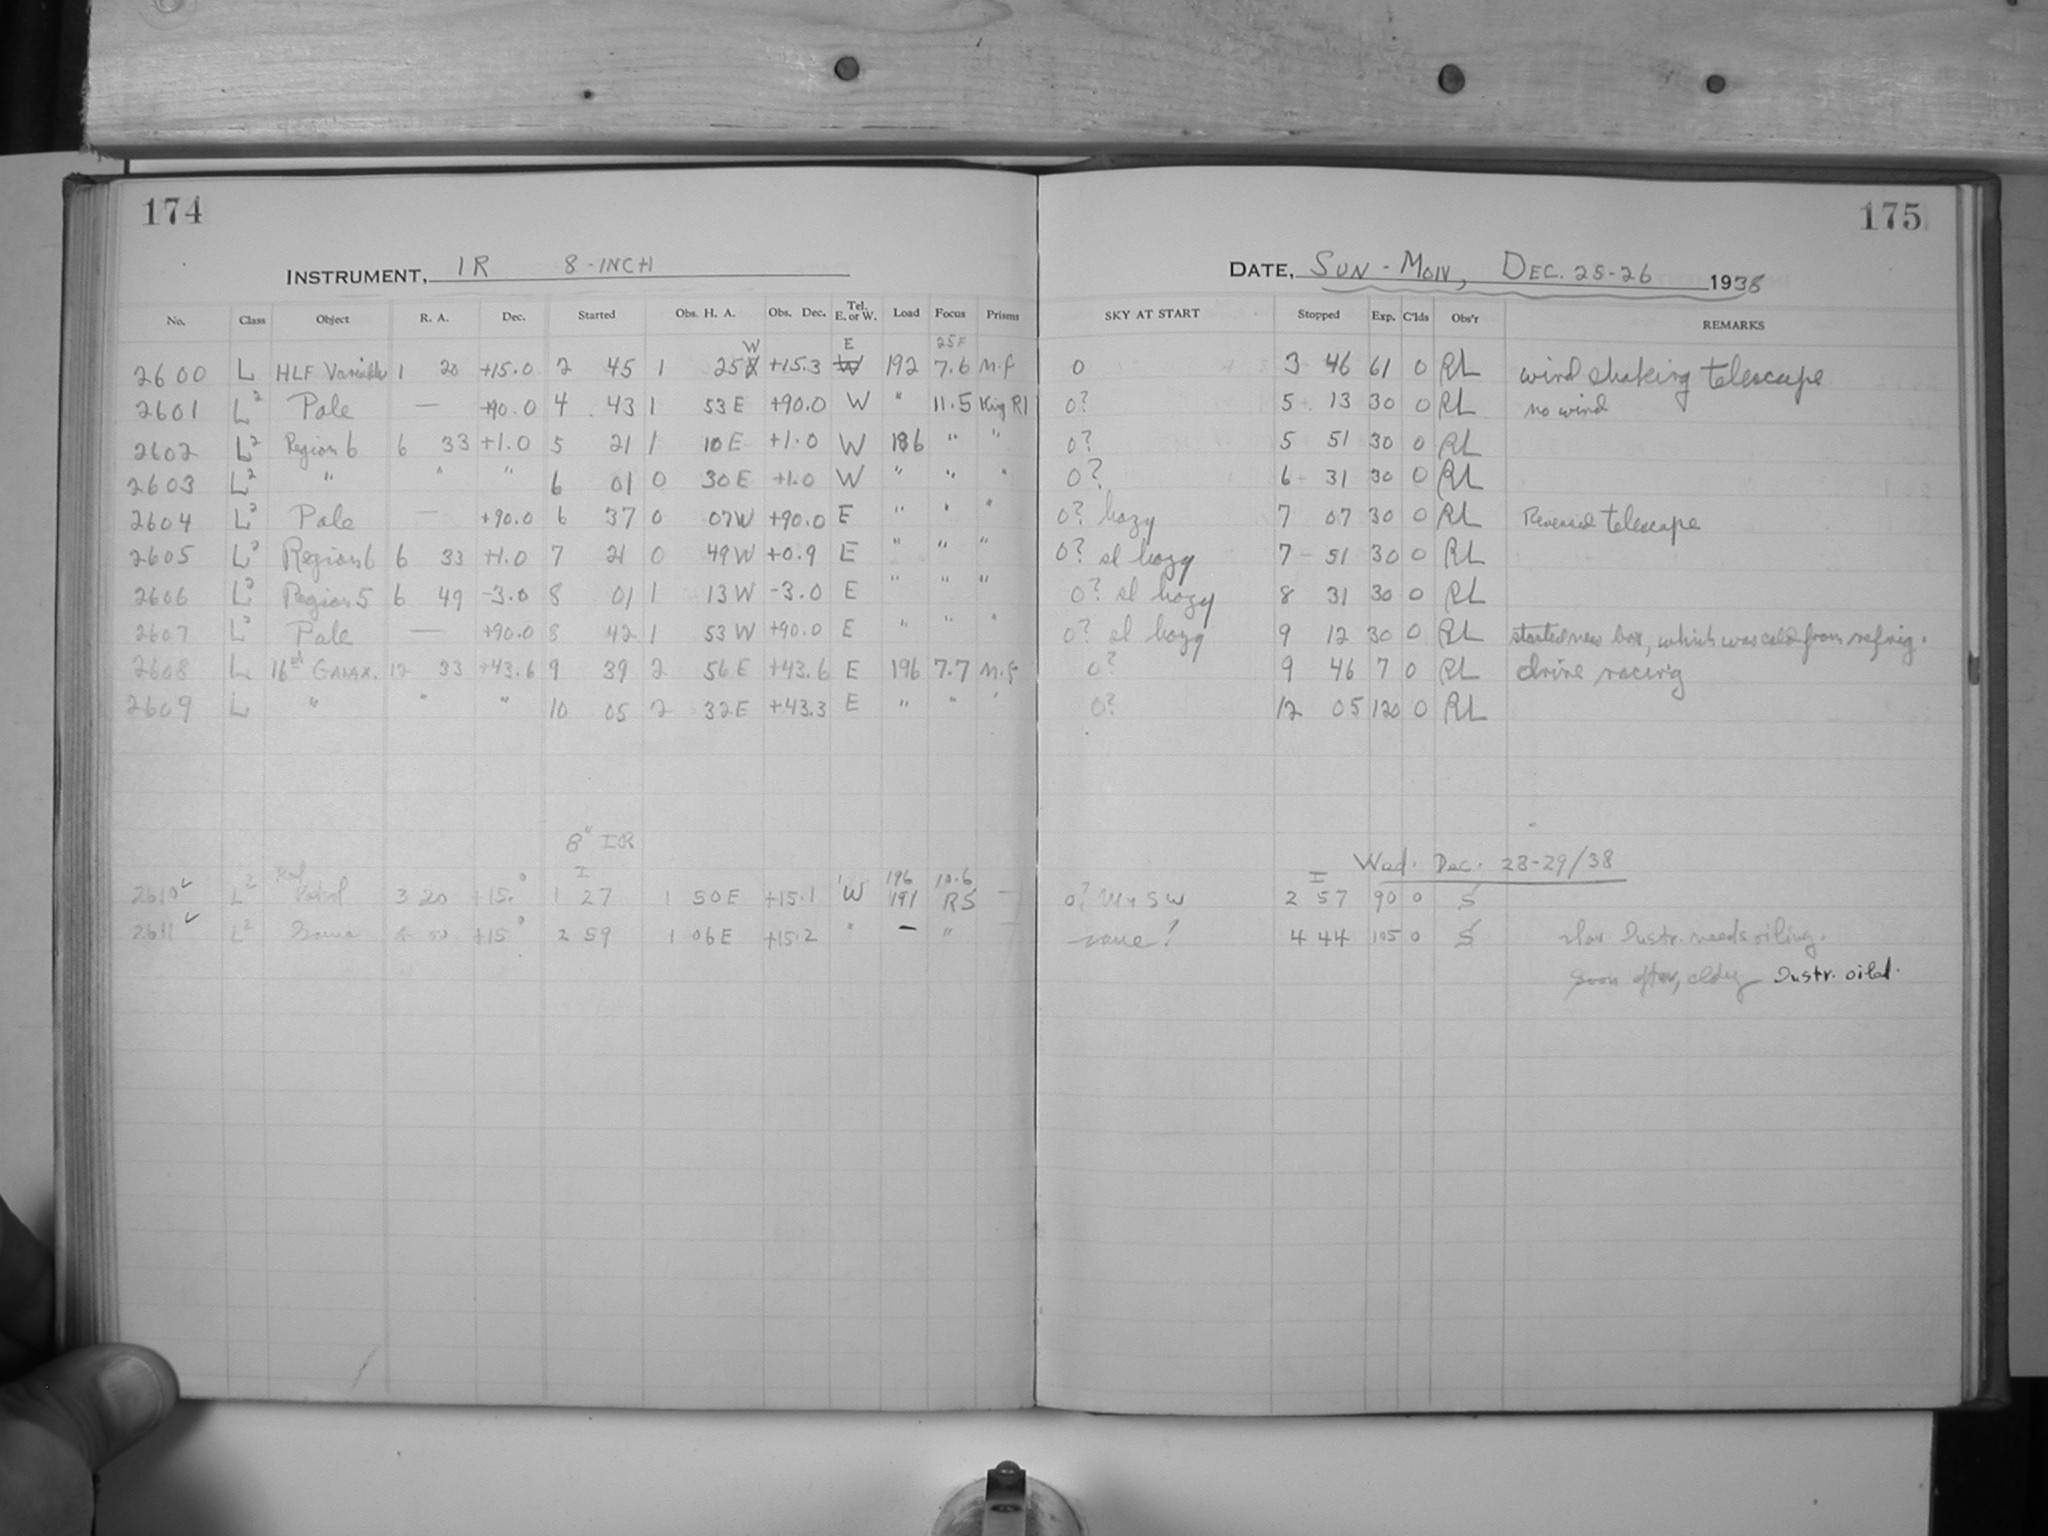 174
175
INSTRUMENT, IR 8-INCH
DATE, SUN - MON, DEC. 25-26 1938
No. Class Object R. A. Dec. Started Obs. H. A. Obs. Dec. Tel. E. or W. Load Focus Prisms SKY AT START Stopped Exp. C'lds Obs'r REMARKS
W E 25F
2600 L HLF Variable 1 20 +15.0 2 45 1 25 +15.3 W 192 7.6 M.F 0 3 46 61 0 RL wind shaking telescope
2601 L² Pole — +90.0 4 43 1 53 E +90.0 W " 11.5 King R1 0? 5 13 30 0 RL no wind
2602 L² Region 6 6 33 +1.0 5 21 1 10 E +1.0 W 186 " " 0? 5 51 30 0 RL
2603 L² " " " 6 01 0 30 E +1.0 W " " " 0? 6 31 30 0 RL
2604 L² Pole — +90.0 6 37 0 07 W +90.0 E " " " 0? hazy 7 07 30 0 RL Reversed telescope
2605 L² Region 6 6 33 +1.0 7 21 0 49 W +0.9 E " " " 0? sl hazy 7 51 30 0 RL
2606 L² Region 5 6 49 -3.0 8 01 1 13 W -3.0 E " " " 0? sl hazy 8 31 30 0 RL
2607 L² Pole — +90.0 8 42 1 53 W +90.0 E " " " 0? sl hazy 9 12 30 0 RL started new box, which was cold from refrig.
2608 L 16th GALAX. 12 33 +43.6 9 39 2 56 E +43.6 E 196 7.7 M.F 0? 9 46 7 0 RL drive racing
2609 L " " " 10 05 2 32 E +43.3 E " " " 0? 12 05 120 0 RL
8" IR
Wed. Dec. 28-29/38
I 196 10.6 I
2610 ✓ L² Patrol 3 20 +15.° 1 27 1 50 E +15.1 W 191 R5 — 0? SW 2 57 90 0 S
2611 ✓ L² +15° 2 59 1 06 E +15.2 " — " — same? 4 44 105 0 S Instr. needs oiling.
Soon after, cldy Instr. oild.